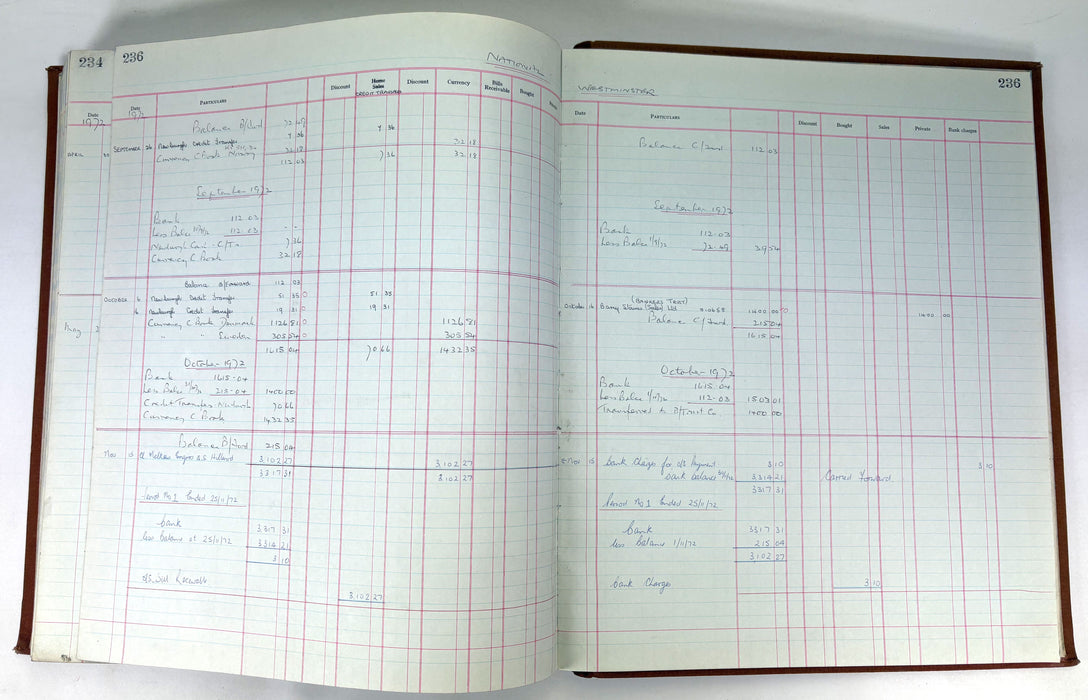 234
Date
1972
APRIL 30
May 2
236
NATIONAL
Date PARTICULARS Discount Home Sales Discount Currency Bills Receivable Bought
CREDIT TRANSFER
1972
Balance B/Fwd 32 49
7 36 7 36
SEPTEMBER 26 Newburgh Credit Transfer 32 18
Currency C Book Norway 32 18
112 03 7 36 32 18
September 1972
Bank 112.03
Less Balce 112.03 - -
Newburgh Cred - C/Tr. 7 36
Currency C Book 32 18
Balance B/Forward 112 03
OCTOBER 4 Newburgh Credit Transfer 51 35 0 51 35
16 Newburgh Credit Transfer 19 31 0 19 31
Currency C Book Denmark 1126 81 0 1126 81
" Sweden 305 54 0 305 54
1615 04 70 66 1432 35
October 1972
Bank 1615.04
Less Balce 215.04 1400 00
Credit Transfers Newburgh 70 66
Currency C Book 1432 35
Balance B/Fwd 215 04
Nov 15 3,102 27 3,102 27
3317 31 3,102 27
Period No 1 ended 25/11/72
bank 3317 31
less balance at 25/11/72 3314 21
3 10
3,102 27
WESTMINSTER 236
Date PARTICULARS Discount Bought Sales Private Bank charges
Balance C/Fwd 112 03
September 1972
Bank 112.03
Less Balce 1/9/72 72.49 39 54
(BANKERS TRST)
October 16 Barry Staines (Sales) Ltd 1400 00 0 1400 00
Balance C/Fwd 215 04
1615 04
October 1972
Bank 1615.04
Less Balce 1/10/72 112.03 1503 01
Transferred to B/Trust Co. 1400 00
Nov 15 bank Charges for o/s Payment 3 10 3 10
bank balance 3314 21 Carried Forward
3317 31
Period No 1 ended 25/11/72
bank 3317 31
less balance 1/11/72 215 04
3,102 27
bank Charges 3 10